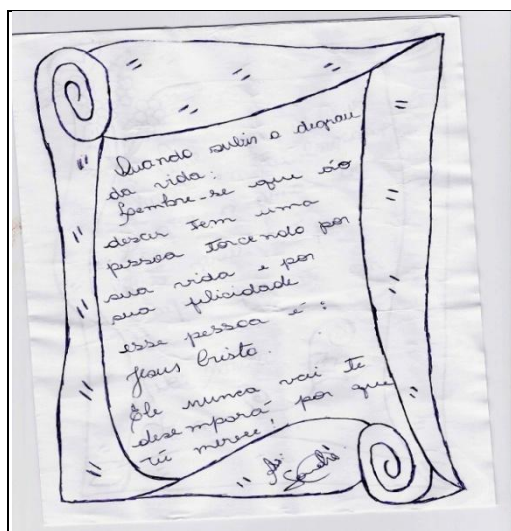 Quando subir o degrau
da vida:
Lembre-se que ao
descer tem uma
pessoa torcendo por
sua vida e por
sua felicidade
esse pessoa é:
Jesus Cristo.
Ele nunca vai te
desempará- por que
tú merece!
Ass: